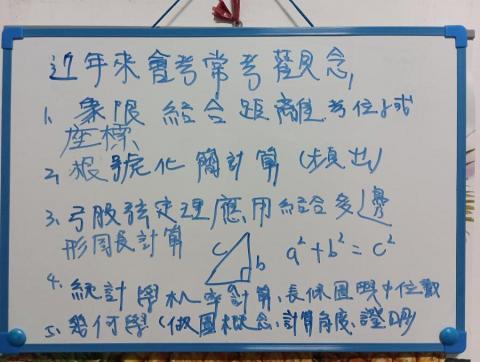 近年來會考常考觀念,
1. 象限 結合 距離考位置或
座標
2. 根號化簡計算 (頻出)
3. 勾股弦定理應用結合多邊
形周長計算
c b a²+b²=c²
4. 統計學机率計算,長條圖與中位數
5. 幾何學(做圖概念,計算角度,證明)